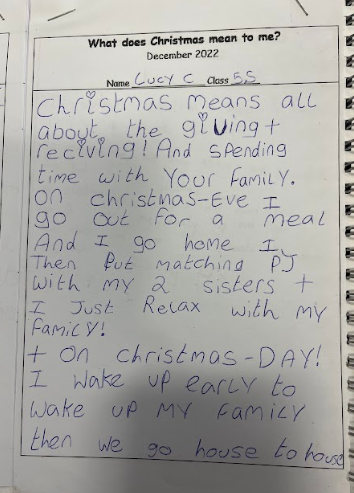 What does Christmas mean to me?
December 2022
Name Lucy C Class 5S
Christmas means all
about the giving +
reciving! And spending
time with Your family.
On christmas-Eve I
go out for a meal
And I go home I
Then Put matching PJ
with my 2 sisters +
I Just Relax with my
Family!
+ On christmas-DAY!
I wake up early to
wake up my family
then we go house to house